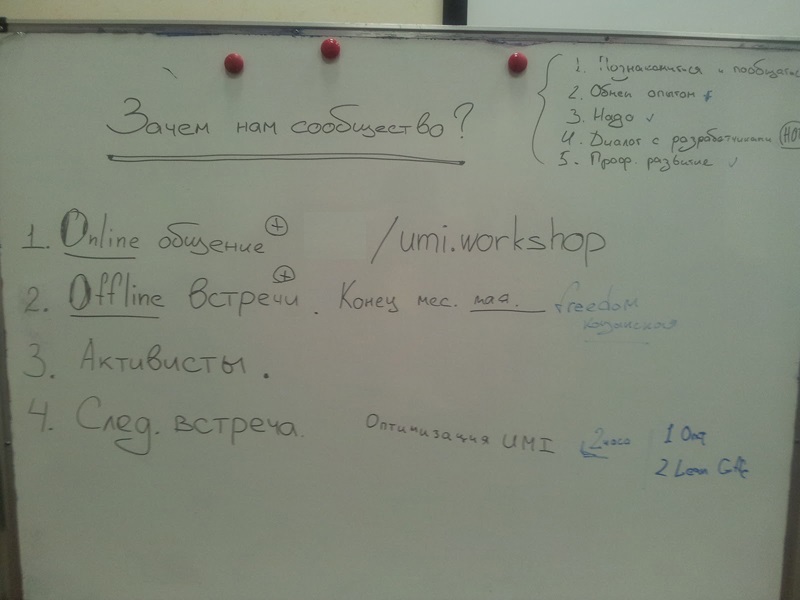 Зачем нам сообщество?
1. Познакомиться и пообщаться
2. Обмен опытом
3. Надо ✓
4. Диалог с разработчиками
5. Проф. развитие ✓
1. Online общение + /umi.workshop
2. Offline встречи + . Конец мес. мая. freedom
казанская
3. Активисты.
4. След. встреча. Оптимизация UMI 2 часа
1 
2 Lean